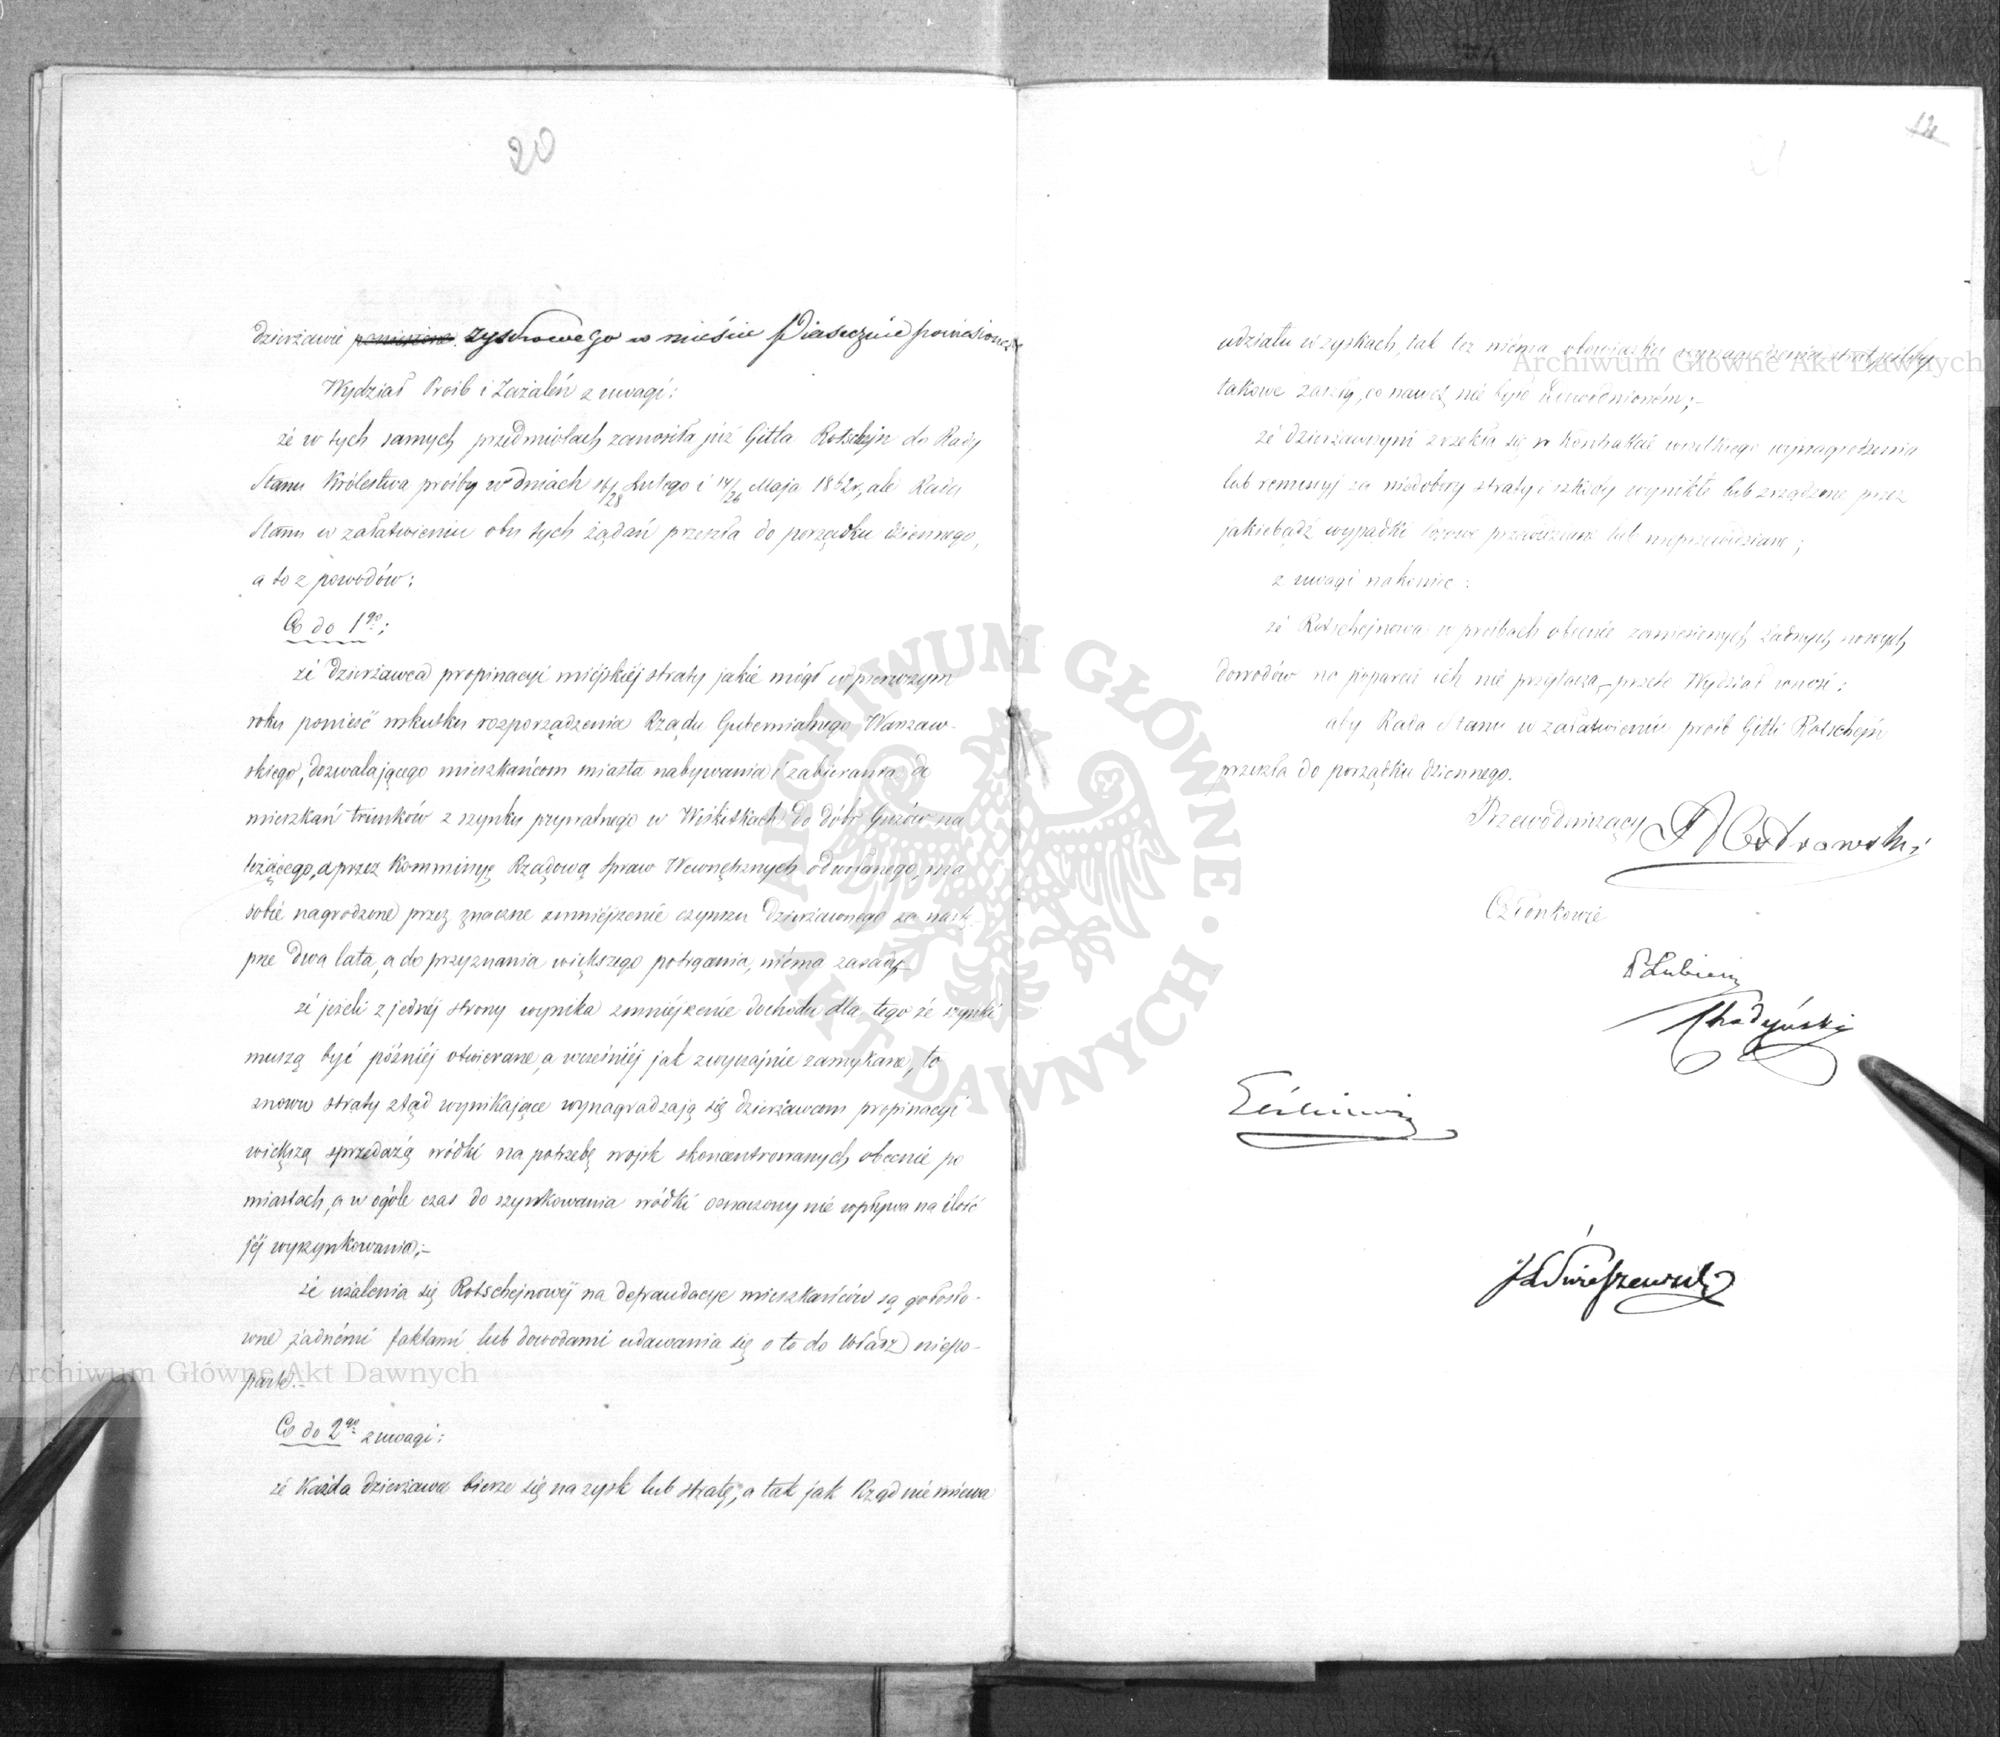 20
dzierżawie poniesione zyskowego w mieście Piasecznie poniesione
Wydział Prośb i Zażaleń z uwagi:
że w tych samych przedmiotach zanosiła już Gitla Rotschejn do Rady
Stanu Królestwa prośby w dniach 16/28 Lutego i 14/26 Maja 1862 r, ale Rada
Stanu w załatwieniu obu tych żądań przeszła do porządku dziennego,
a to z powodów:
Co do 1go:
że dzierżawca propinacyi miejskiéj straty jakie mógł w pierwszym
roku ponieść wskutku rozporządzenia Rządu Gubernialnego Warszaw-
skiego, dozwalającego mieszkańcom miasta nabywania i zabierania do
mieszkań trunków z szynku prywatnego w Wiskitkach do dóbr Guzów na
leżącego, a przez Kommissyę Rządową Spraw Wewnętrznych odwołanego, ma
sobie nagrodzone przez znaczne zmniejszenie czynszu dzierżawnego za nastę-
pne dwa lata, a do przyznania większego potrącenia, niéma zasady
że jeżeli z jednéj strony wynika zmniejszenie dochodu dla tego że szynki
muszą być późniéj otwierane, a wcześniéj jak zwyczajnie zamykane, to
znowu straty ztąd wynikające wynagradzają się dzierżawcom propinacyi
większą sprzedażą wódki na potrzebę wojsk skoncentrowanych obecnie po
miastach, a w ogóle czas do szynkowania wódki oznaczony nie wpływa na ilość
jéj wyszynkowania;-
że użalenia się Rotschejnowéj na defraudacye mieszkańców są gołosło-
wne żadnémi faktami lub dowodami udawania się o to do Władz niepo-
parte.-
Co do 2go z uwagi:
że Każda dzierżawa bierze się na zysk lub stratę, a tak jak Rząd nie miewa
12
udziału w zyskach, tak też niéma obowiązku wynagrodzenia strat jeśliby
takowe zaszły, co nawet nie było udowodnioném;-
że dzierżawczyni zrzekła się w Kontrakcie wszelkiego wynagrodzenia
lub remissyj za niedobory straty i szkody wynikłe lub zrządzone przez
jakiebądź wypadki losowe przewidziane lub nieprzewidziane;
z uwagi nakoniec:
że Rotschejnowa w prośbach obecnie zanoszonych żadnych nowych
dowodów na poparcie ich nie przytacza,- przeto Wydział wnosi:
aby Rada Stanu w załatwieniu prośb Gitli Rotschejn
przeszła do porządku dziennego.
Przewodniczący A Ostrowski
Członkowie
Łubieński
Archiwum Główne Akt Dawnych
Archiwum Główne Akt Dawnych
ARCHIWUM GŁÓWNE · AKT DAWNYCH ·